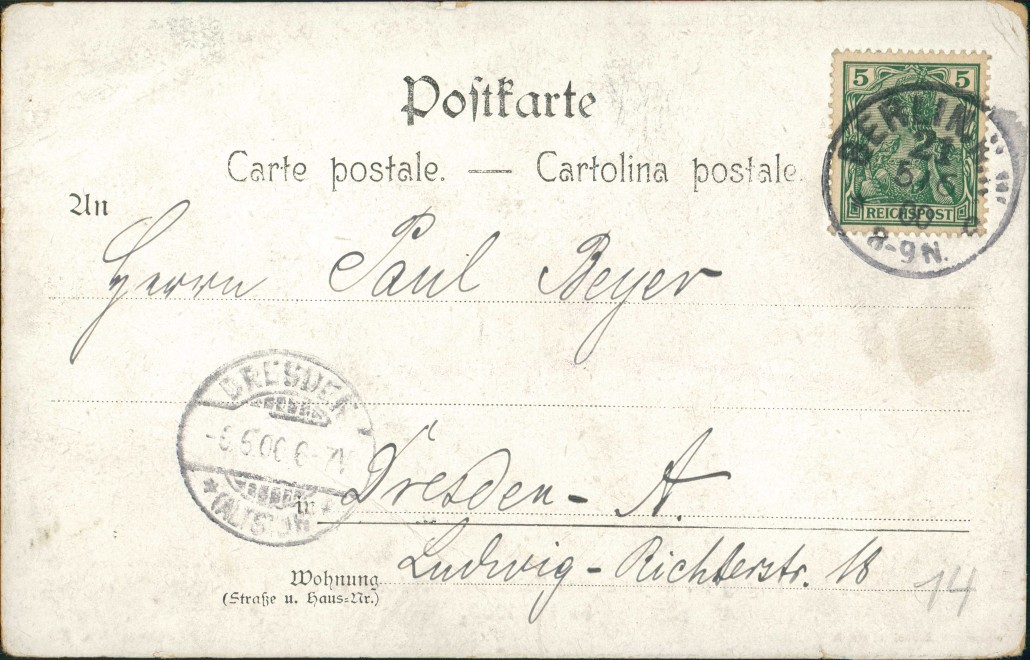 Postkarte
Carte postale. — Cartolina postale.
An
5 5
REICHSPOST
BERLIN W
5
00
8-9N.
Herrn Paul Beyer
DRESDEN
00 6-7V
* (ALTST.) *
in Dresden - A.
Ludwig - Richterstr. 18
Wohnung
(Straße u. Haus=Nr.)
14